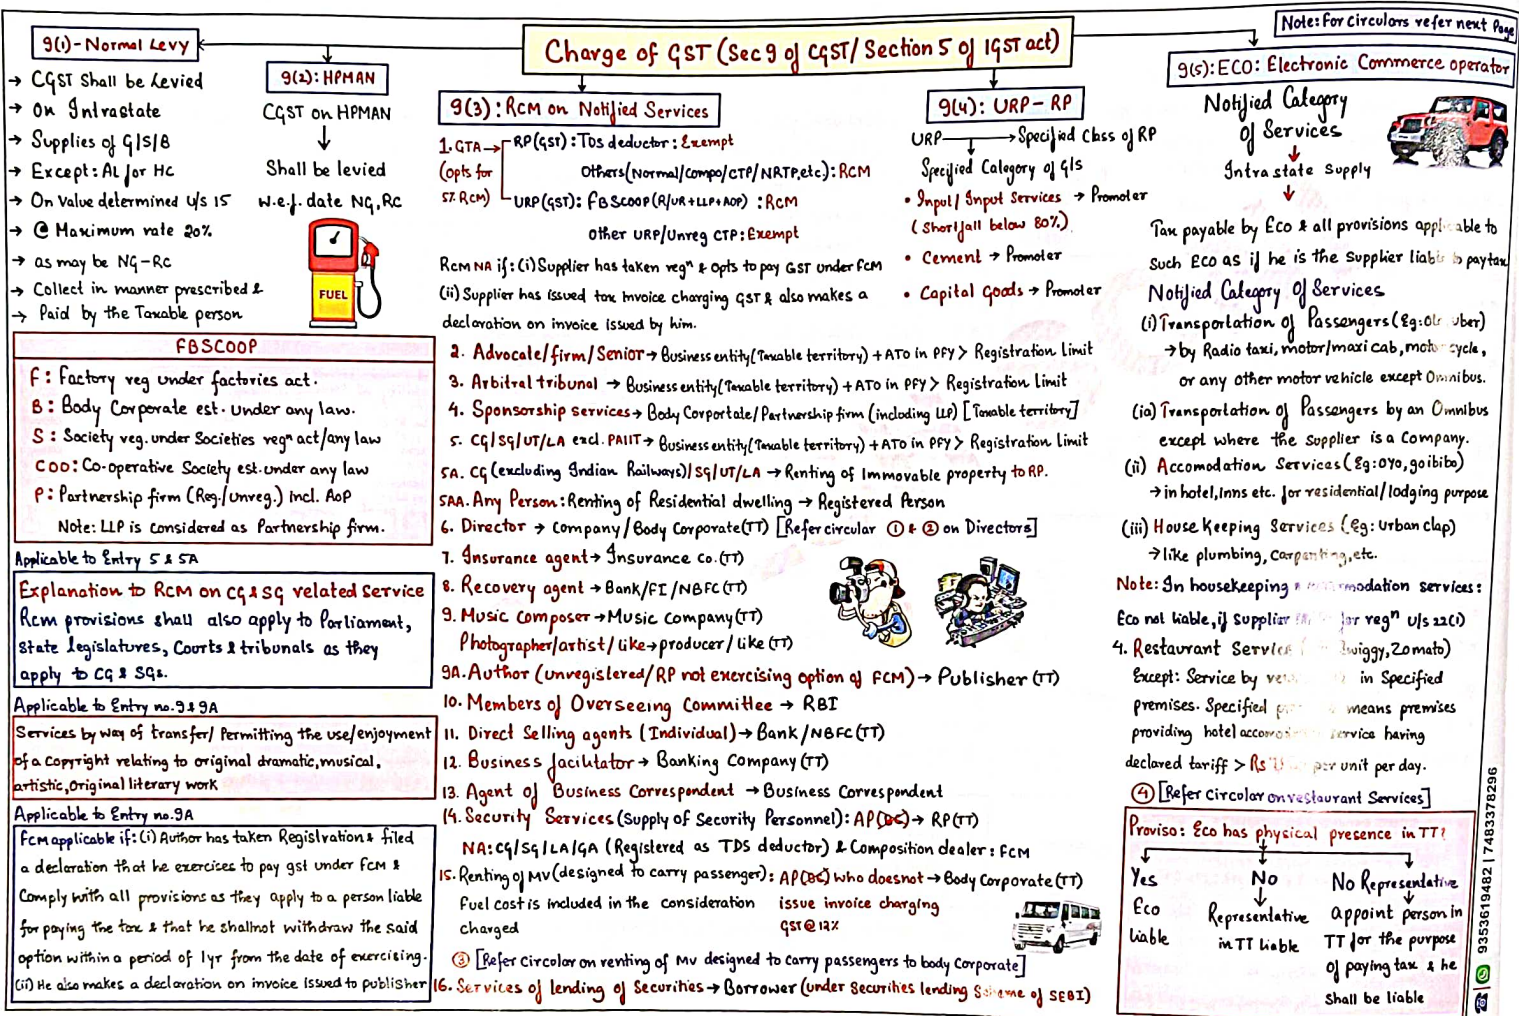 Note: For Circulars refer next Page
Charge of GST (Sec 9 of CGST/Section 5 of IGST act)
9(1)-Normal Levy
→ CGST Shall be Levied
→ On Intrastate
→ Supplies of G/S/B
→ Except: AL for HC
→ On Value determined u/s 15
→ @ Maximum rate 20%
→ as may be NG-RC
→ Collect in manner prescribed &
→ Paid by the Taxable person
9(2): HPMAN
CGST on HPMAN
↓
Shall be levied
w.e.f. date NG,RC
FUEL
FBSCOOP
F: Factory reg under factories act.
B: Body Corporate est. under any law.
S: Society reg. under Societies regn act/any law
COO: Co-operative Society est. under any law
P: Partnership firm (Reg./unreg.) incl. AoP
Note: LLP is considered as Partnership firm.
Applicable to Entry 5 & 5A
Explanation to RCM on CG & SG related service
Rcm provisions shall also apply to Parliament,
State legislatures, Courts & tribunals as they
apply to CG & SGs.
Applicable to Entry no. 9 & 9A
Services by way of transfer/ Permitting the use/enjoyment
of a Copyright relating to original dramatic, musical,
artistic, Original literary work
Applicable to Entry no. 9A
FCM applicable if: (i) Author has taken Registration & filed
a declaration that he exercises to pay gst under FCM &
Comply with all provisions as they apply to a person liable
for paying the tax & that he shall not withdraw the said
option within a period of 1yr from the date of exercising.
(ii) He also makes a declaration on invoice issued to publisher
9(3): RCM on Notified Services
1. GTA → RP(GST): TDS deductor: Exempt
(opts for Others (Normal/Compo/CTP/NRTP, etc.): RCM
5% RCM) URP(GST): FBSCOOP (R/UR+LLP+AOP) : RCM
Other URP/Unreg CTP: Exempt
RCM NA if: (i) Supplier has taken regn & opts to pay GST under FCM
(ii) Supplier has issued tax invoice charging GST & also makes a
declaration on invoice issued by him.
2. Advocate/firm/Senior → Business entity (Taxable territory) + ATO in PFY > Registration Limit
3. Arbitral tribunal → Business entity (Taxable territory) + ATO in PFY > Registration Limit
4. Sponsorship services → Body Corportate/Partnership firm (including LLP) [Taxable territory]
5. CG/SG/UT/LA excl. PAIIT → Business entity (Taxable territory) + ATO in PFY > Registration Limit
5A. CG (excluding Indian Railways)/SG/UT/LA → Renting of Immovable property to RP.
5AA. Any Person: Renting of Residential dwelling → Registered Person
6. Director → Company/Body Corporate (TT) [Refer circular ① & ② on Directors]
7. Insurance agent → Insurance Co. (TT)
8. Recovery agent → Bank/FI/NBFC (TT)
9. Music Composer → Music Company (TT)
Photographer/artist/like → producer/like (TT)
9A. Author (unregistered/RP not exercising option of FCM) → Publisher (TT)
10. Members of Overseeing Committee → RBI
11. Direct Selling agents (Individual) → Bank/NBFC (TT)
12. Business facilitator → Banking Company (TT)
13. Agent of Business Correspondent → Business Correspondent
14. Security Services (Supply of Security Personnel): AP(BC) → RP(TT)
NA: CG/SG/LA/GA (Registered as TDS deductor) & Composition dealer: FCM
15. Renting of MV (designed to carry passenger): AP(BC) who doesnot → Body Corporate (TT)
Fuel cost is included in the consideration issue invoice charging
charged GST @ 12%
③ [Refer Circular on renting of MV designed to carry passengers to body Corporate]
16. Services of lending of Securities → Borrower (under Securities lending Scheme of SEBI)
9(4): URP-RP
URP → Specified Class of RP
↓
Specified Category of G/S
• Input/Input Services → Promoter
(Shortfall below 80%)
• Cement → Promoter
• Capital Goods → Promoter
9(5): ECO: Electronic Commerce operator
Notified Category
of Services
↓
Intrastate Supply
↓
Tax payable by Eco & all provisions applicable to
Such ECO as if he is the Supplier liable to pay tax
Notified Category Of Services
(i) Transportation of Passengers (Eg: Ola, uber)
→ by Radio taxi, motor/maxi cab, motorcycle,
or any other motor vehicle except Omnibus.
(ia) Transportation of Passengers by an Omnibus
except where the supplier is a Company.
(ii) Accomodation Services (Eg: OYO, goibibo)
→ in hotel, Inns etc. for residential/lodging purpose
(iii) House Keeping Services (Eg: Urban clap)
→ like plumbing, Carpenting, etc.
Note: In housekeeping services:
Eco not liable, if supplier for regn u/s 22(1)
4. Restaurant Service Swiggy, Zomato)
Except: Service by in Specified
premises. Specified means premises
providing hotel accomodation Service having
declared tariff > Rs per unit per day.
④ [Refer Circular on restaurant Services]
Proviso: Eco has physical presence in TT?
Yes
Eco
liable
No
↓
Representative
in TT liable
No Representative
↓
appoint person in
TT for the purpose
of paying tax & he
shall be liable
9353619482 | 7483378296